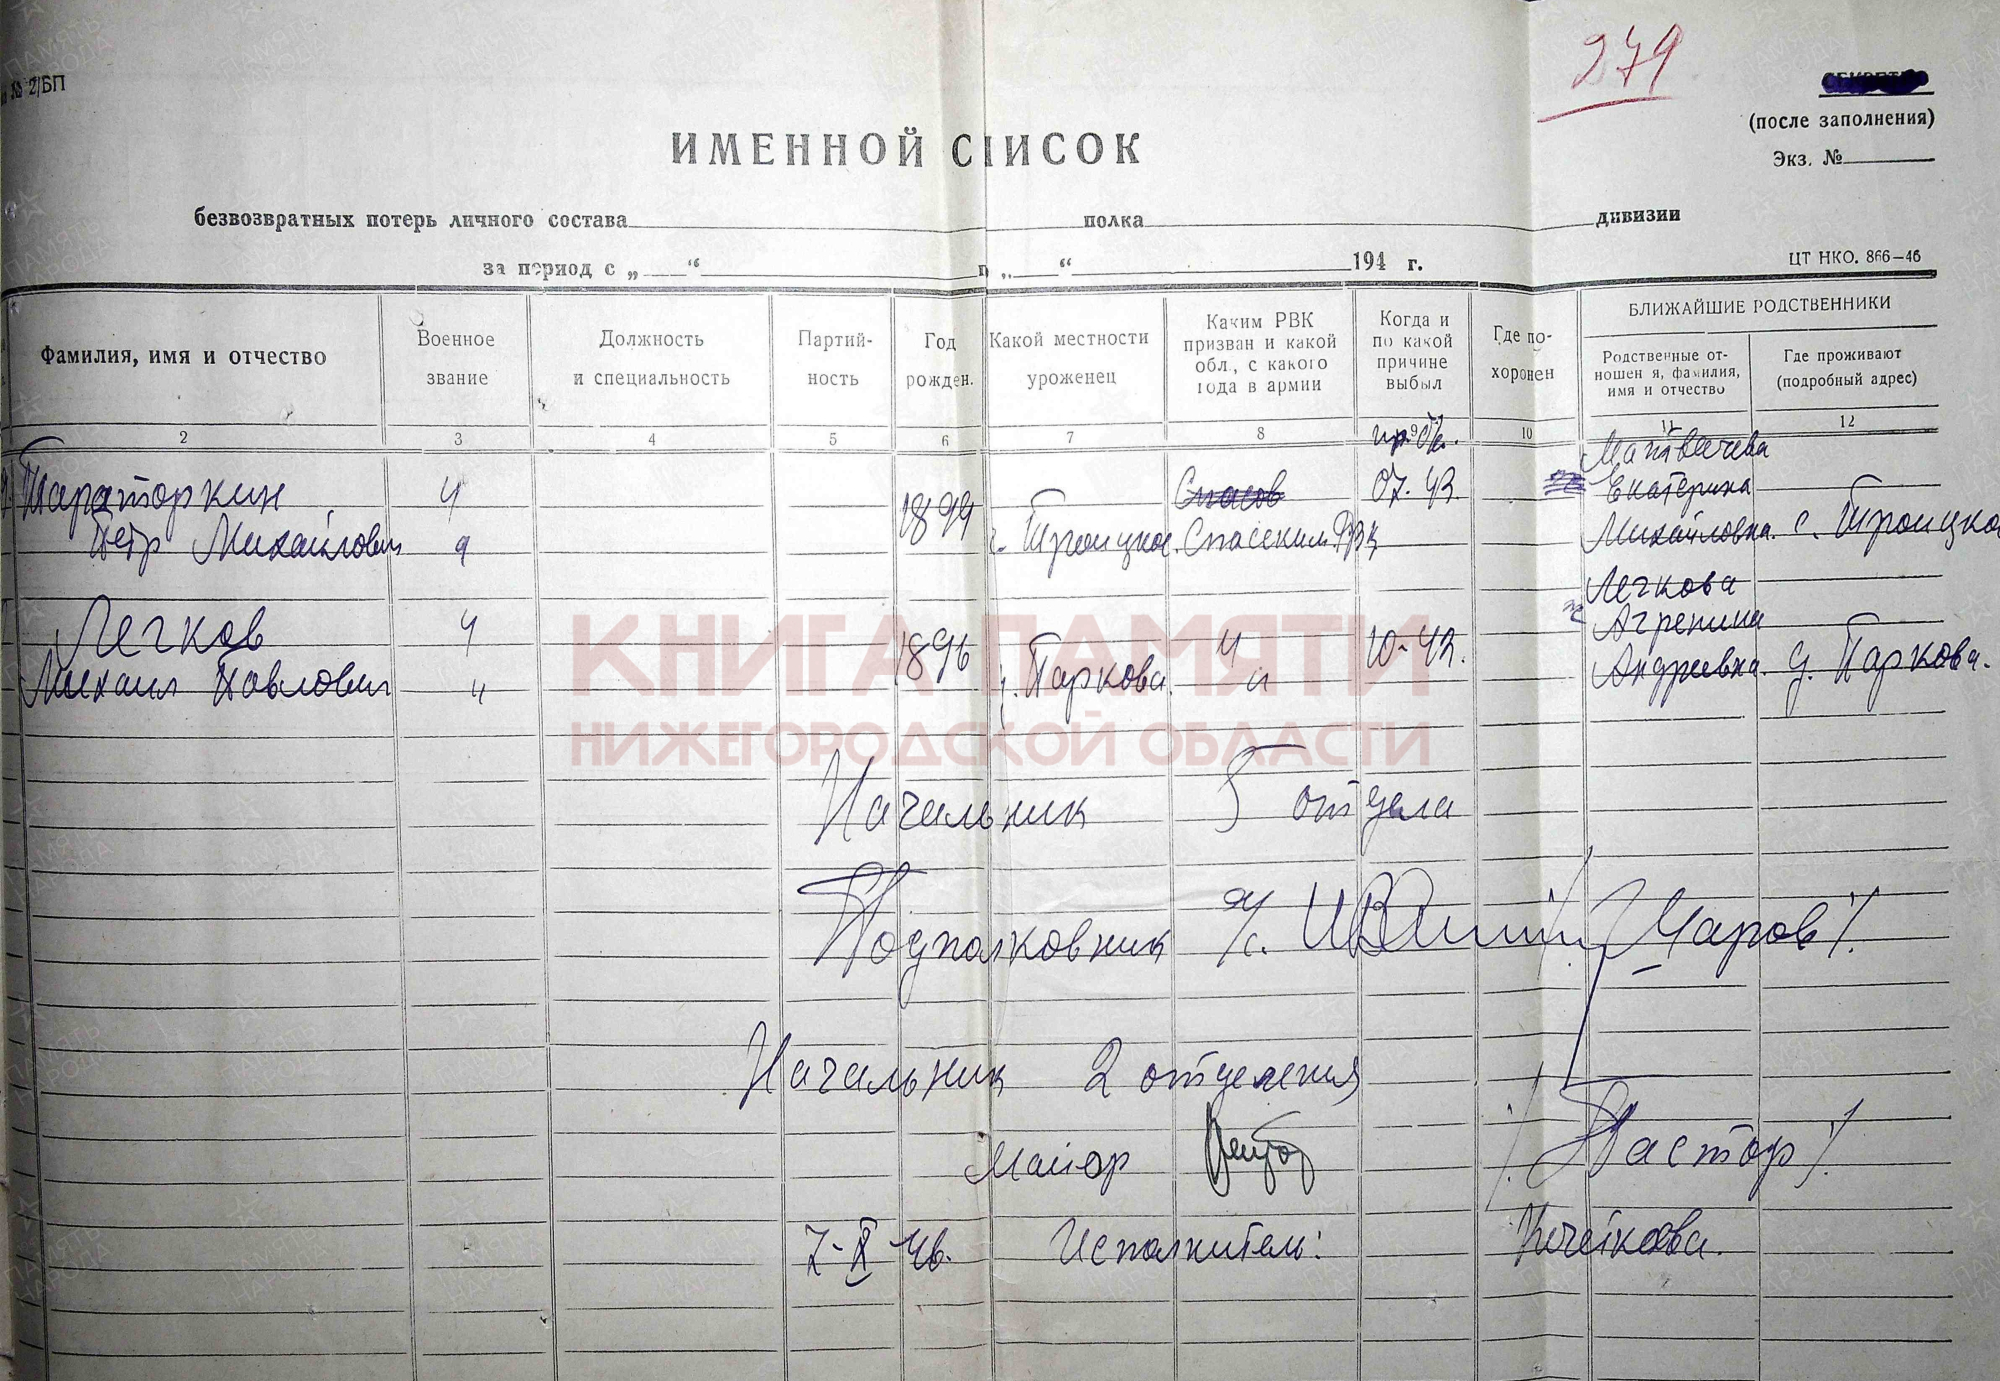 279
№ 2/БП
(после заполнения)
Экз. №
ИМЕННОЙ СПИСОК
безвозвратных потерь личного состава полка дивизии
за период с „ “ п „ “ 194 г.
ЦТ НКО. 866—46
Фамилия, имя и отчество
Военное
звание
Должность
и специальность
Партий-
ность
Год
рожден.
Какой местности
уроженец
Каким РВК
призван и какой
обл., с какого
года в армии
Когда и
по какой
причине
выбыл
Где по-
хоронен
БЛИЖАЙШИЕ РОДСТВЕННИКИ
Родственные от-
ношен я, фамилия,
имя и отчество
Где проживают
(подробный адрес)
2 3 4 5 6 7 8 9 10 11 12
Тараторкин
Петр Михайлович
1899
с. Троицкое
Спасским РВК
07-43.
Екатерина
Михайловна
с. Троицко
Легков
Михаил Павлович
1896
Паркова
10-42.
Легкова
Агрепина
Андреевна
д. Паркова.
КНИГА ПАМЯТИ
НИЖЕГОРОДСКОЙ ОБЛАСТИ
Начальник 5 отдела
Подполковник а/с. /Чаров/.
Начальник 2 отделения
Майор /Пастор/.
7-X 46. Исполнитель: Кочеткова.